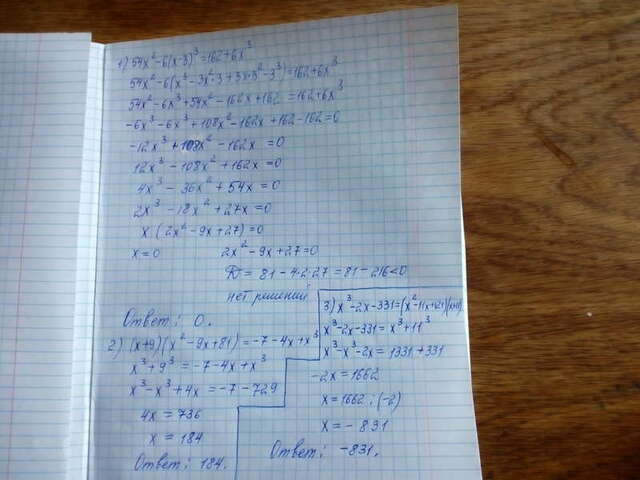 1) 54x² - 6(x-3)³ = 162 + 6x³
54x² - 6(x³ - 3x²·3 + 3x·3² - 3³) = 162 + 6x³
54x² - 6x³ + 54x² - 162x + 162 = 162 + 6x³
-6x³ - 6x³ + 108x² - 162x + 162 - 162 = 0
-12x³ + 108x² - 162x = 0
12x³ - 108x² + 162x = 0
4x³ - 36x² + 54x = 0
2x³ - 18x² + 27x = 0
x(2x² - 9x + 27) = 0
x = 0 2x² - 9x + 27 = 0
D = 81 - 4·2·27 = 81 - 216 < 0
нет решений
Ответ: 0.
2) (x+9)(x² - 9x + 81) = -7 - 4x + x³
x³ + 9³ = -7 - 4x + x³
x³ - x³ + 4x = -7 - 729
4x = 736
x = 184
Ответ: 184.
3) x³ - 2x - 331 = (x² - 11x + 121)(x+11)
x³ - 2x - 331 = x³ + 11³
x³ - x³ - 2x = 1331 + 331
-2x = 1662
x = 1662 : (-2)
x = -831
Ответ: -831.